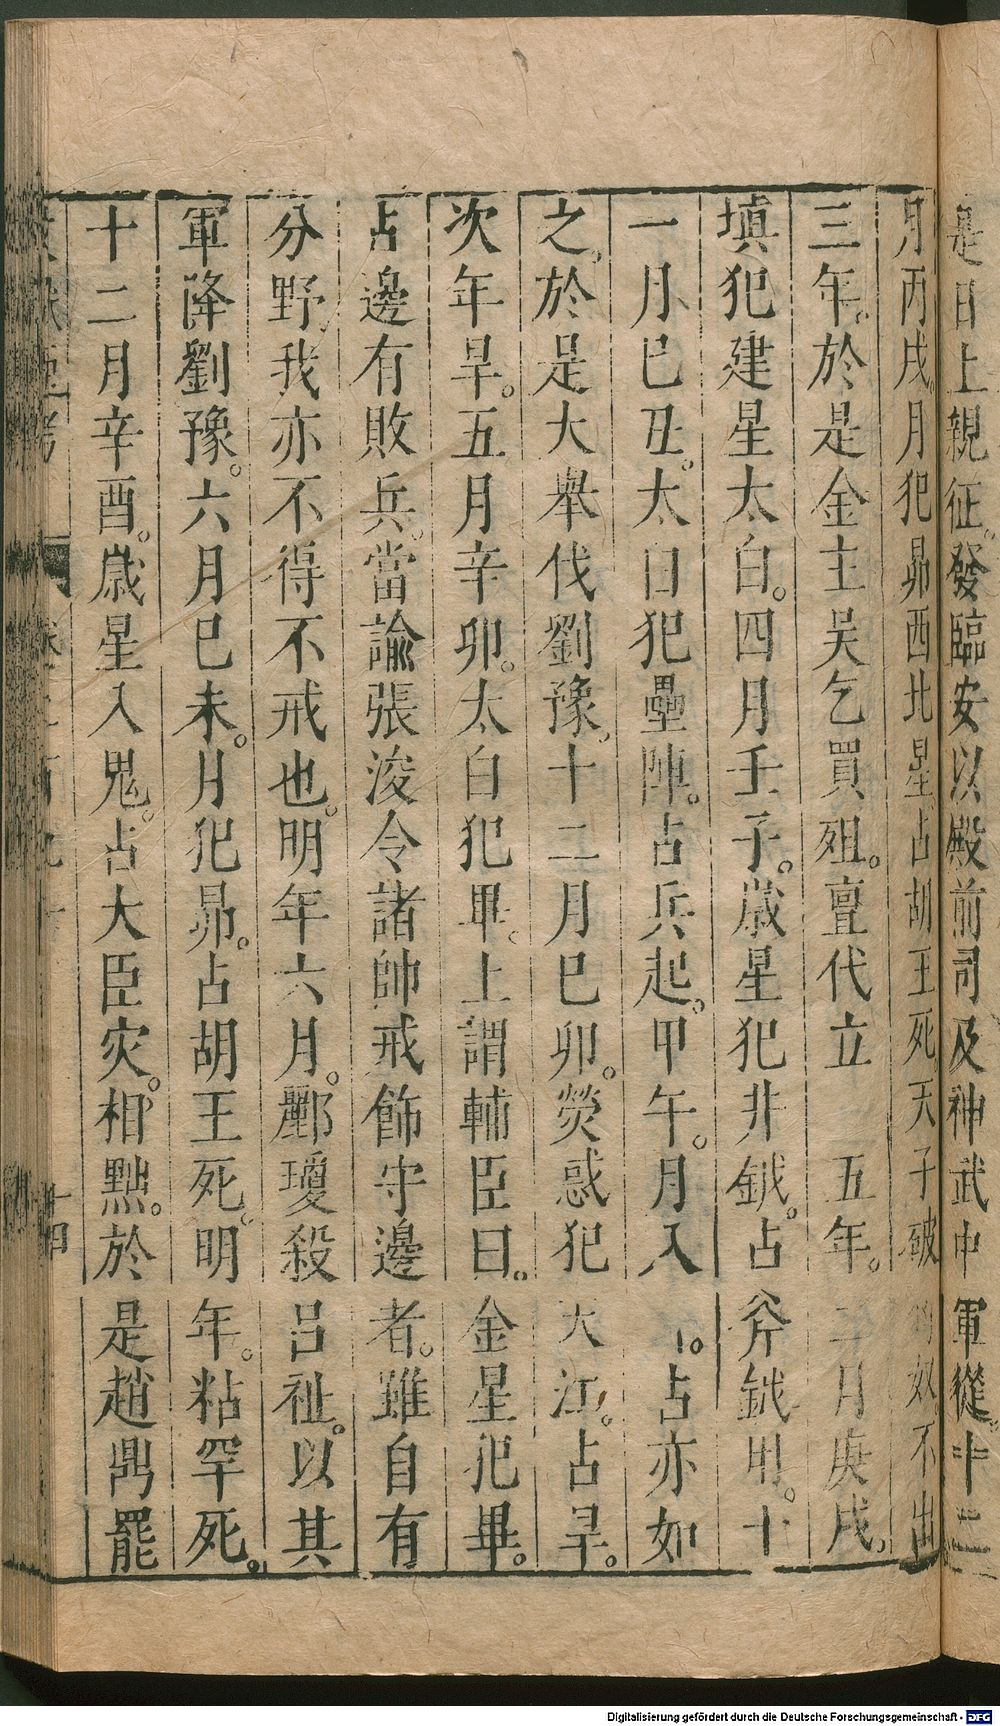 是日上親征發臨安以殿前司及神武中軍從十二
月丙戌月犯昴西北星占胡王死天子破匈奴不出
三年於是金主吳乞買殂亶代立 五年二月庚戌
填犯建星太白四月壬子歲星犯井鉞占斧鉞用十
一月巳丑太白犯壘陣占兵起甲午月入 占亦如
之於是大舉伐劉豫十二月巳卯熒惑犯天江占旱
次年旱五月辛卯太白犯畢上謂輔臣曰金星犯畢
占邊有敗兵當諭張浚令諸帥戒飭守邊者雖自有
分野我亦不得不戒也明年六月酈瓊殺呂祉以其
軍降劉豫六月巳未月犯昴占胡王死明年粘罕死
十二月辛酉歲星入鬼占大臣灾相黜於是趙鼎罷
十四
Digitalisierung gefördert durch die Deutsche Forschungsgemeinschaft - DFG